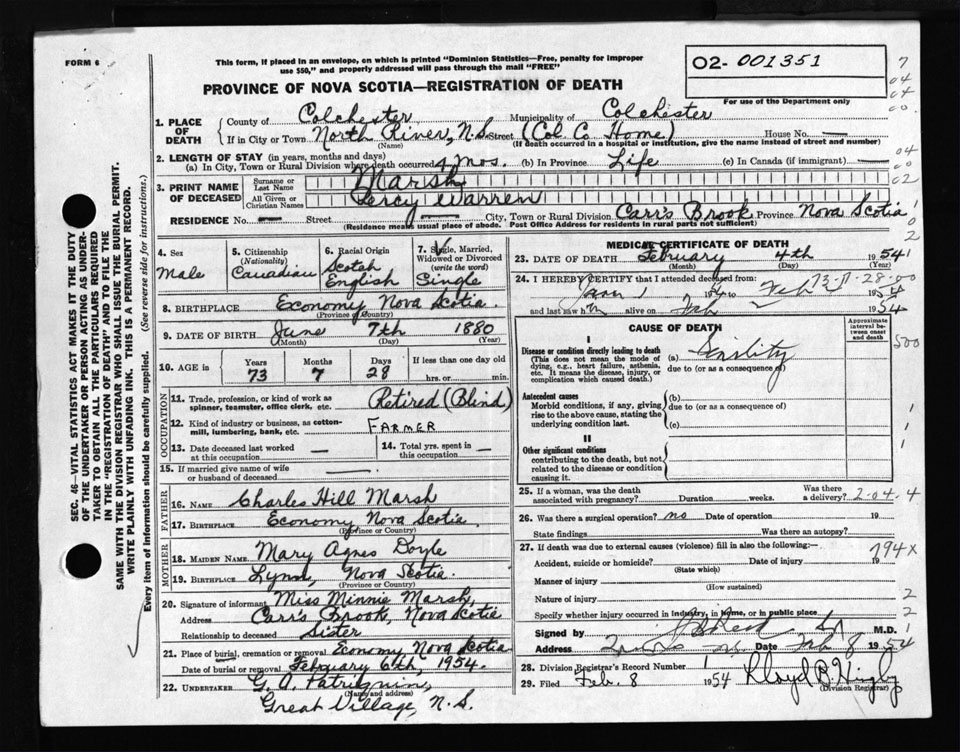 FORM 6
This form, if placed in an envelope, on which is printed "Dominion Statistics—Free, penalty for improper
use $50," and properly addressed will pass through the mail "FREE"
O2- 001351
For use of the Department only
PROVINCE OF NOVA SCOTIA—REGISTRATION OF DEATH
1. PLACE OF DEATH
County of Colchester Municipality of Colchester
If in City or Town North River, N.S. Street (Col. Co. Home) House No. —
(Name) (If death occurred in a hospital or institution, give the name instead of street and number)
2. LENGTH OF STAY (in years, months and days)
(a) In City, Town or Rural Division where death occurred 4 mos. (b) In Province Life (c) In Canada (if immigrant) —
3. PRINT NAME OF DECEASED
Surname or Last Name Marsh
All Given or Christian Names Percy Warren
RESIDENCE No. — Street — City, Town or Rural Division Carr's Brook Province Nova Scotia
(Residence means usual place of abode. Post Office Address for residents in rural parts not sufficient)
4. Sex Male
5. Citizenship (Nationality) Canadian
6. Racial Origin Scotch English
7. Single, Married, Widowed or Divorced (write the word) Single
8. BIRTHPLACE Economy Nova Scotia.
(Province or Country)
9. DATE OF BIRTH June 7th 1880
(Month) (Day) (Year)
10. AGE in Years 73 Months 7 Days 28 If less than one day old
hrs. or min.
OCCUPATION
11. Trade, profession, or kind of work as spinner, teamster, office clerk, etc. Retired (Blind)
12. Kind of industry or business, as cotton-mill, lumbering, bank, etc. FARMER
13. Date deceased last worked at this occupation —
14. Total yrs. spent in this occupation —
15. If married give name of wife or husband of deceased —
FATHER
16. NAME Charles Hill Marsh
17. BIRTHPLACE Economy, Nova Scotia.
(Province or Country)
MOTHER
18. MAIDEN NAME Mary Agnes Doyle
19. BIRTHPLACE Lynn, Nova Scotia.
(Province or Country)
20. Signature of informant Miss Minnie Marsh,
Address Carr's Brook, Nova Scotia
Relationship to deceased Sister
21. Place of burial, cremation or removal Economy, Nova Scotia
Date of burial or removal February 6th, 1954.
22. UNDERTAKER G. A. Patriquin,
(Name and address)
Great Village, N.S.
MEDICAL CERTIFICATE OF DEATH
23. DATE OF DEATH February 4th 1954
(Month) (Day) (Year)
24. I HEREBY CERTIFY that I attended deceased from:
Jan 1 54 to Feb 1954
and last saw h m alive on Feb 1954
73-11-28-00
CAUSE OF DEATH
Approximate interval between onset and death
I
Disease or condition directly leading to death (a) Senility
(This does not mean the mode of dying, e.g., heart failure, asthenia, etc. It means the disease, injury, or complication which caused death.)
due to (or as a consequence of)
Antecedent causes (b)
Morbid conditions, if any, giving rise to the above cause, stating the underlying condition last.
due to (or as a consequence of)
(c)
II
Other significant conditions
contributing to the death, but not related to the disease or condition causing it.
25. If a woman, was the death associated with pregnancy? Duration weeks. Was there a delivery? 2-04.4
26. Was there a surgical operation? no Date of operation 19
State findings Was there an autopsy?
27. If death was due to external causes (violence) fill in also the following:— 794X
Accident, suicide or homicide? Date of injury 19
(State which)
Manner of injury
(How sustained)
Nature of injury
Specify whether injury occurred in industry, in home, or in public place
Signed by M.D.
Address Date Feb 8 1954
28. Division Registrar's Record Number 1
29. Filed Feb. 8 1954 Lloyd B. Higby
(Division Registrar)
SEC. 46—VITAL STATISTICS ACT MAKES IT THE DUTY
OF THE UNDERTAKER OR PERSON ACTING AS UNDER-
TAKER TO OBTAIN ALL THE PARTICULARS REQUIRED
IN THE "REGISTRATION OF DEATH" AND TO FILE THE
SAME WITH THE DIVISION REGISTRAR WHO SHALL ISSUE THE BURIAL PERMIT.
WRITE PLAINLY WITH UNFADING INK. THIS IS A PERMANENT RECORD.
Every item of information should be carefully supplied. (See reverse side for instructions.)
7
04
04
00
04
00
02
1
0
2
500
1
1
2
2
1